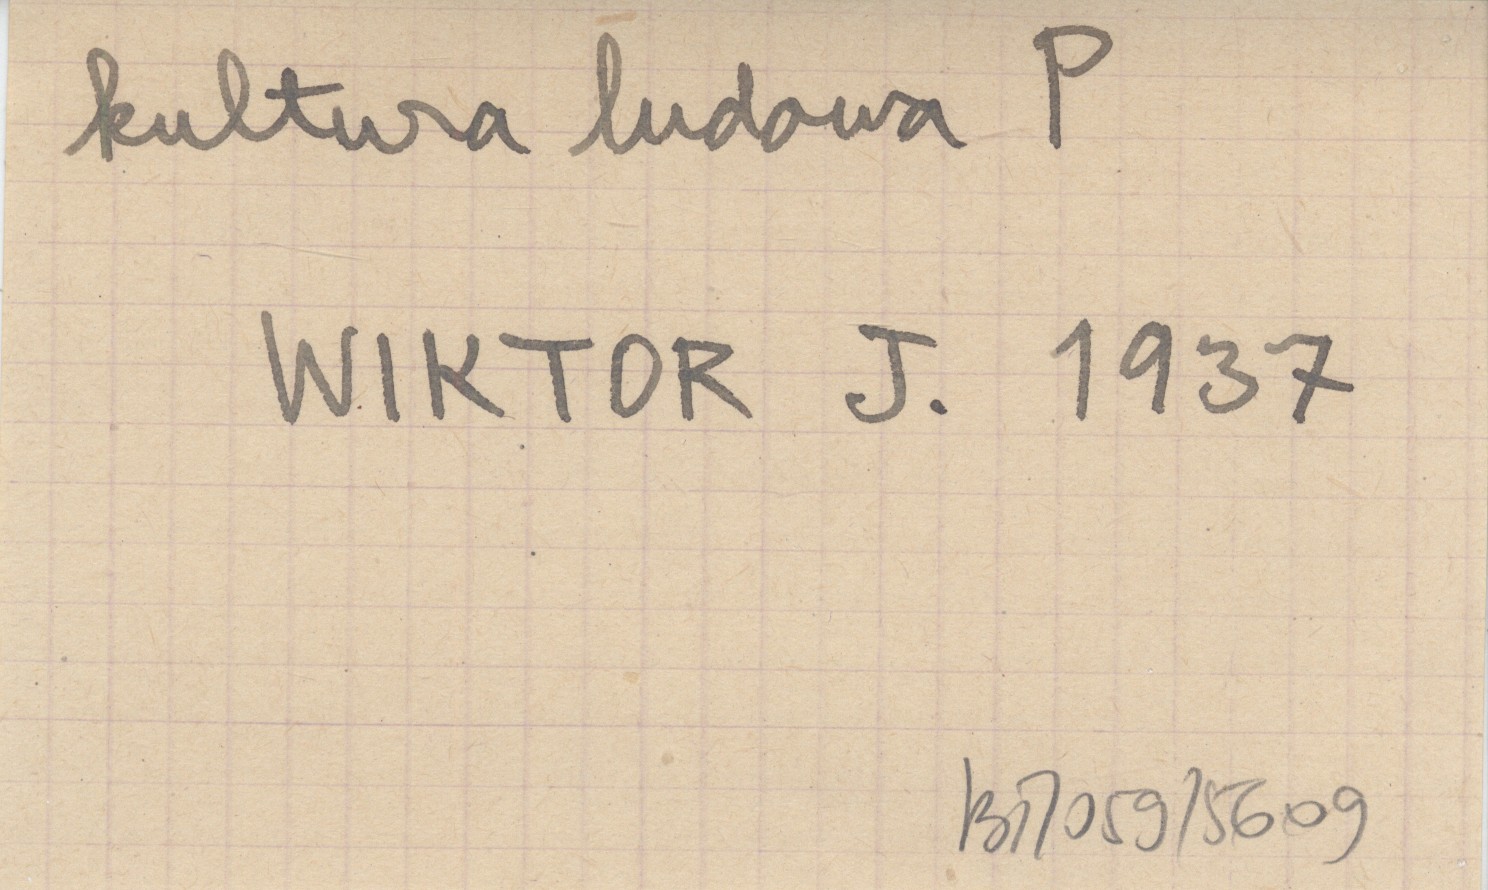 kultura ludowa P
WIKTOR J. 1937
BI/059/5609